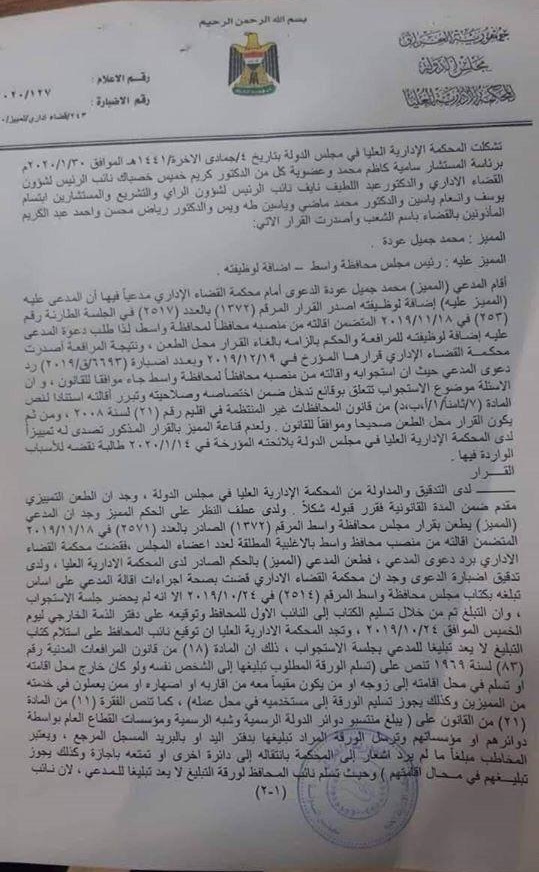 بسم الله الرحمن الرحيم
جمهورية العراق
مجلس الدولة
المحكمة الإدارية العليا
رقم الاعلام :
٠٢٠/١٢٧
رقم الاضبارة :
٢٤٣/قضاء اداري/تمييز/٠
تشكلت المحكمة الإدارية العليا في مجلس الدولة بتاريخ ٤/جمادى الاخرة/١٤٤١هـ الموافق ٢٠٢٠/١/٣٠م
برئاسة المستشار سامية كاظم محمد وعضوية كل من الدكتور كريم خميس خصباك نائب الرئيس لشؤون
القضاء الاداري والدكتور عبد اللطيف نايف نائب الرئيس لشؤون الراي والتشريع والمستشارين ابتسام
يوسف وانعام ياسين والدكتور محمد ماضي وياسين طه ويس والدكتور رياض محسن واحمد عبد الكريم
المأذونين بالقضاء باسم الشعب وأصدرت القرار الاتي:
المميز : محمد جميل عودة .
المميز عليه : رئيس مجلس محافظة واسط – اضافة لوظيفته .
أقام المدعي (المميز) محمد جميل عودة الدعوى أمام محكمة القضاء الإداري مدعياً فيها أن المدعى عليه
(المميز عليه) إضافة لوظيفته اصدر القرار المرقم (١٣٧٢) بالعدد (٢٥١٧) في الجلسة الطارئة رقم
(٢٥٣) في ٢٠١٩/١١/١٨ المتضمن اقالته من منصبه محافظاً لمحافظة واسط لذا طلب دعوة المدعى
عليه إضافة لوظيفته للمرافعة والحكم بالزامه بالغاء القرار محل الطعن ، ونتيجة المرافعة أصدرت
محكمة القضاء الإداري قرارها المؤرخ في ٢٠١٩/١٢/١٩ وبعدد اضبارة (٢٦٩٣/ق/٢٠١٩) رد
دعوى المدعي حيث ان استجوابه واقالته من منصبه محافظاً لمحافظة واسط جاء موافقا للقانون ، و ان
الاسئلة موضوع الاستجواب تتعلق بوقائع تدخل ضمن اختصاصه وصلاحيته وتبرر أقالته استنادا لنص
المادة (٧/ثامنا/١/أ،ب،د) من قانون المحافظات غير المنتظمة في اقليم رقم (٢١) لسنة ٢٠٠٨ ، ومن ثم
يكون القرار محل الطعن صحيحاً وموافقاً للقانون . ولعدم قناعة المميز بالقرار المذكور تصدى له تمييزاً
لدى المحكمة الإدارية العليا في مجلس الدولة بلائحته المؤرخة في ٢٠٢٠/١/١٤ طالبة نقضه للأسباب
الواردة فيها .
القرار
لدى التدقيق والمداولة من المحكمة الإدارية العليا في مجلس الدولة ، وجد ان الطعن التمييزي
مقدم ضمن المدة القانونية فقرر قبوله شكلاً . ولدى عطف النظر على الحكم المميز وجد ان المدعي
(المميز) يطعن بقرار مجلس محافظة واسط المرقم (١٣٧٢) الصادر بالعدد (٢٥٧١) في ٢٠١٩/١١/١٨
المتضمن اقالته من منصب محافظ واسط بالاغلبية المطلقة لعدد اعضاء المجلس ،فقضت محكمة القضاء
الاداري برد دعوى المدعي ، فطعن المدعي (المميز) بالحكم الصادر لدى المحكمة الادارية العليا ، ولدى
تدقيق اضبارة الدعوى وجد ان محكمة القضاء الاداري قضت بصحة اجراءات اقالة المدعي على اساس
تبلغه بكتاب مجلس محافظة واسط المرقم (٢٥١٤) في ٢٠١٩/١٠/٢٤ الا انه لم يحضر جلسة الاستجواب
، وان التبلغ تم من خلال تسليم الكتاب إلى النائب الاول للمحافظ وتوقيعه على دفتر الذمة الخارجي ليوم
الخميس الموافق ٢٠١٩/١٠/٢٤ ، وتجد المحكمة الادارية العليا ان توقيع نائب المحافظ على استلام كتاب
التبليغ لا يعد تبليغا للمدعي بجلسة الاستجواب ، ذلك ان المادة (١٨) من قانون المرافعات المدنية رقم
(٨٣) لسنة ١٩٦٩ تنص على (تسلم الورقة المطلوب تبليغها إلى الشخص نفسه ولو كان خارج محل اقامته
او تسلم في محل اقامته إلى زوجه او من يكون مقيماً معه من اقاربه او اصهاره او ممن يعملون في خدمته
من المميزين وكذلك يجوز تسليم الورقة إلى مستخدميه في محل عمله) ، كما تنص الفقرة (١١) من المادة
(٢١) من القانون على ( يبلغ منتسبو دوائر الدولة الرسمية وشبه الرسمية ومؤسسات القطاع العام بواسطة
دوائرهم او مؤسساتهم وترسل الورقة المراد تبليغها بدفتر اليد او بالبريد المسجل المرجع ، ويعتبر
المخاطب مبلغاً ما لم يرد اشعار إلى المحكمة بانتقاله إلى دائرة اخرى او تمتعه باجازة وكذلك يجوز
تبليغهم في محال اقامتهم ) وحيث تسلم نائب المحافظ لورقة التبليغ لا يعد تبليغا للمدعي ، لان نائب
(١-٢)